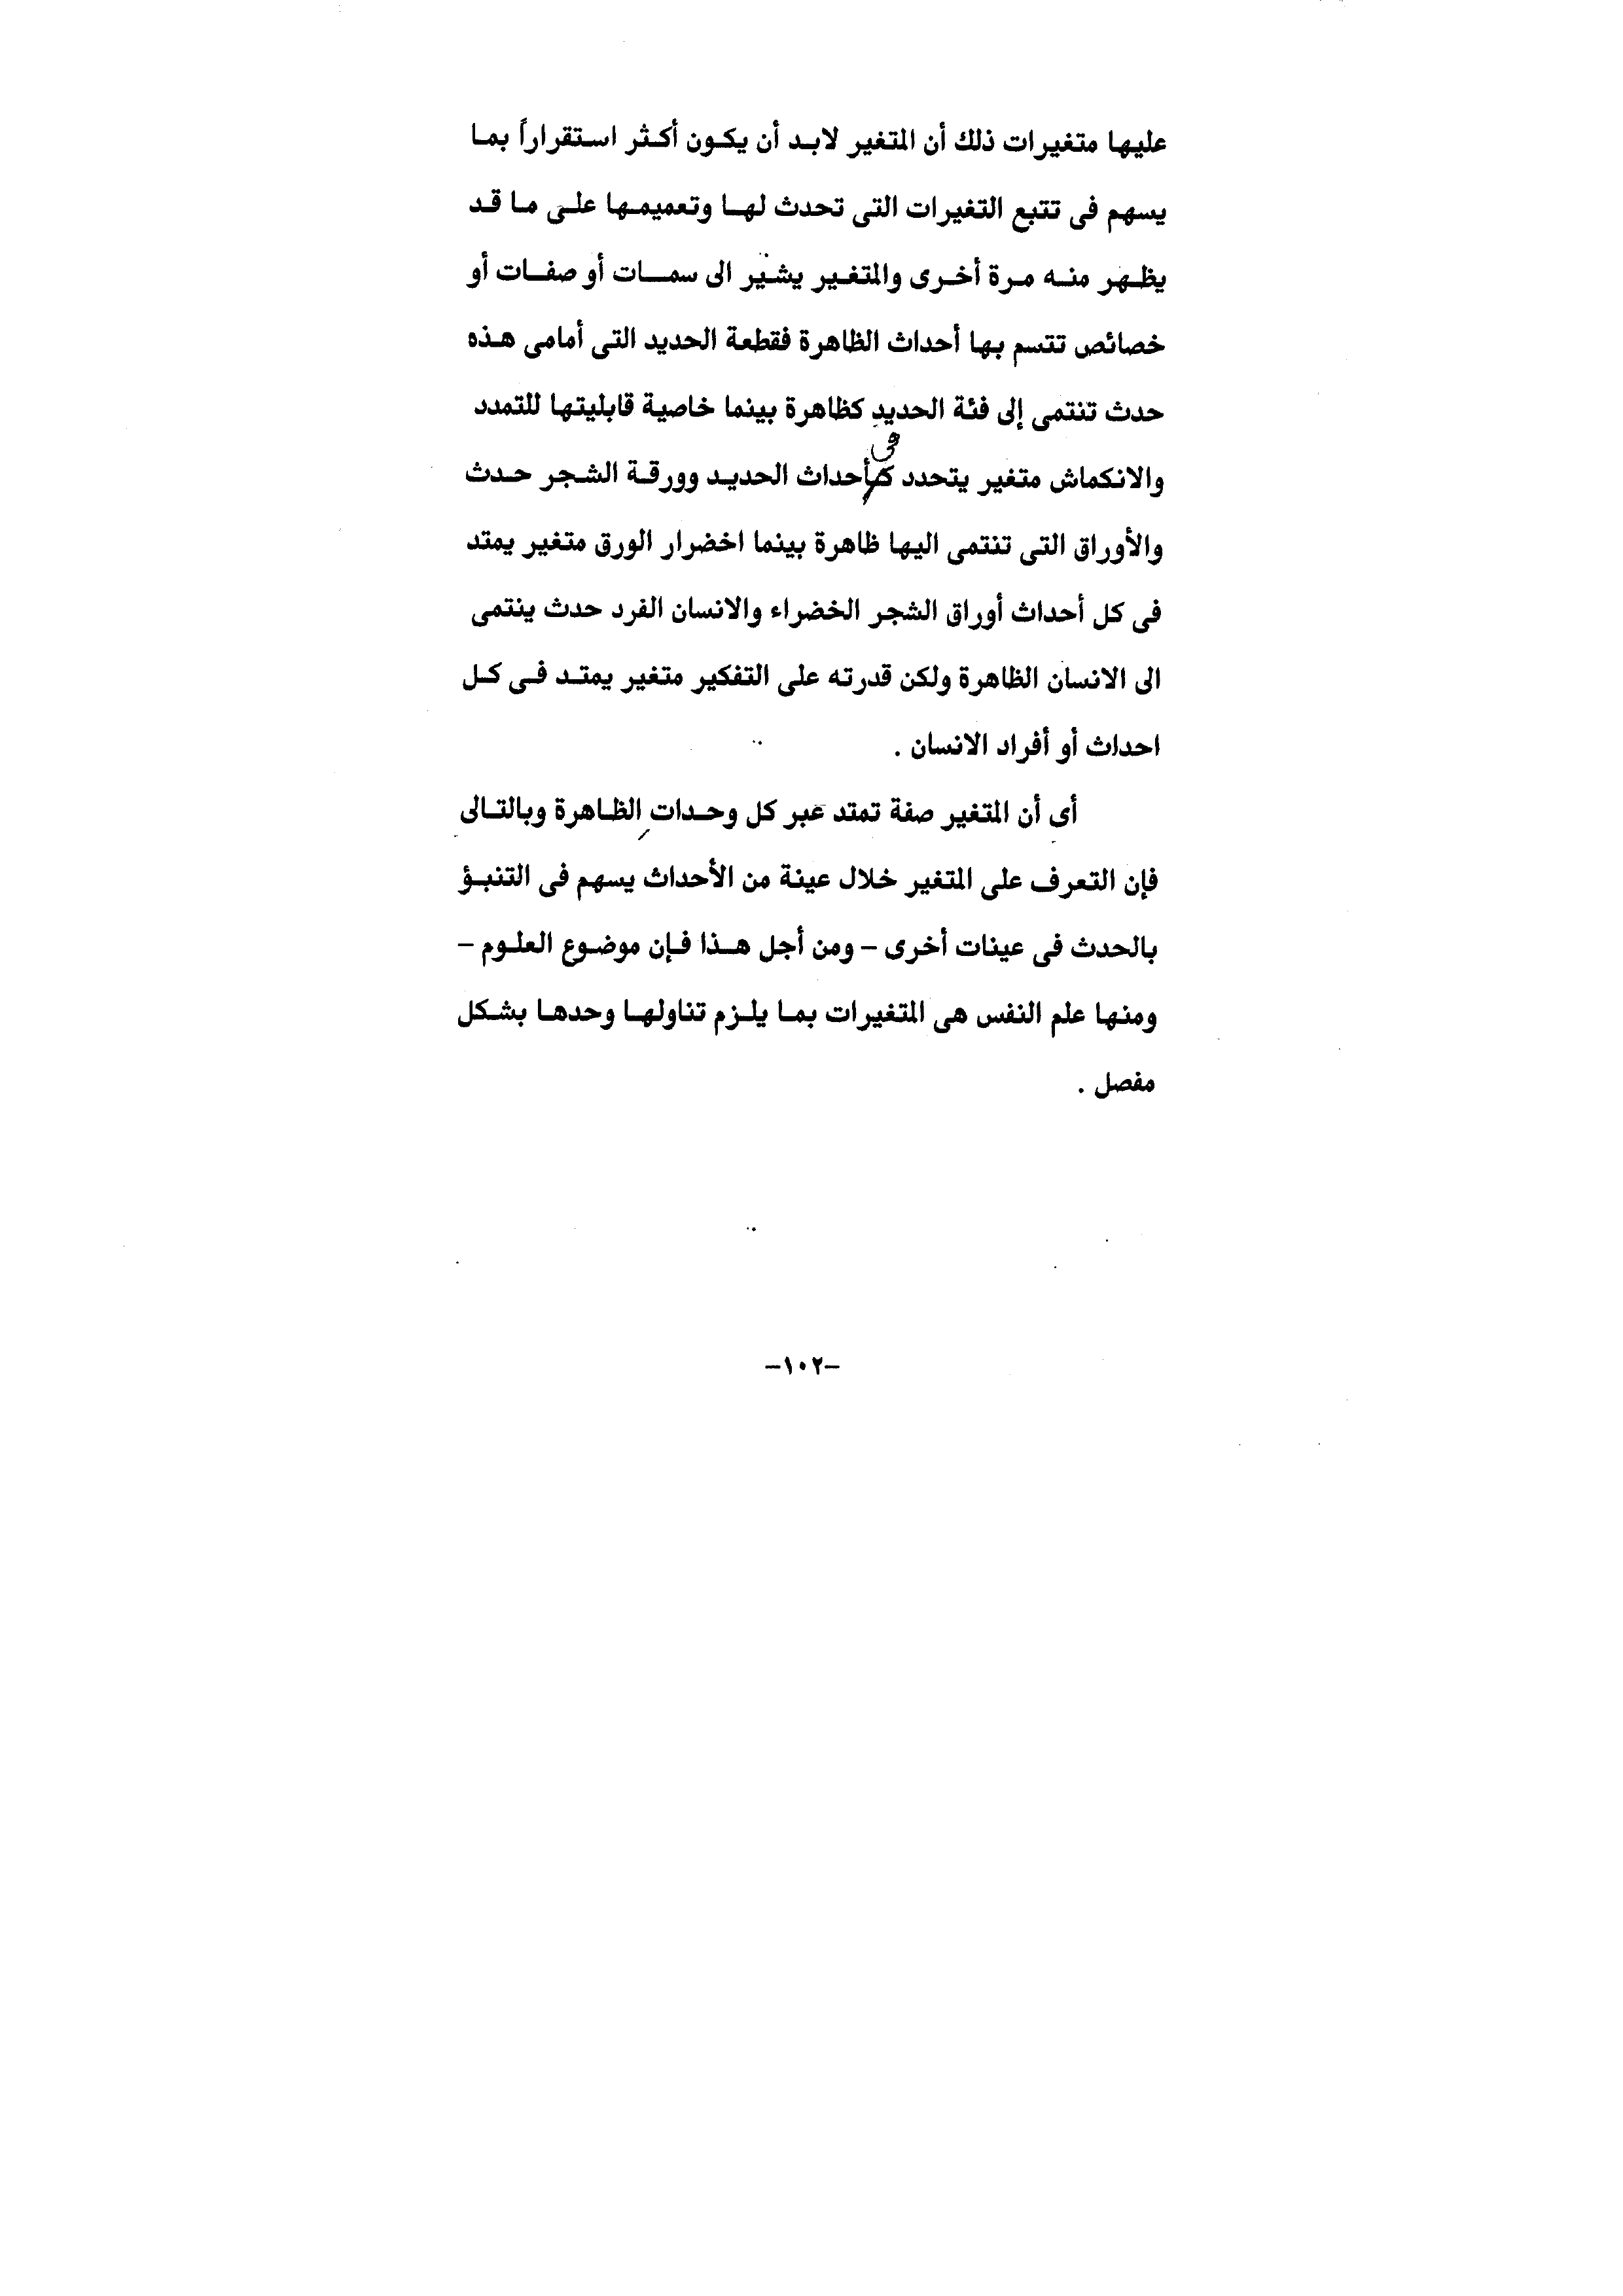 عليها متغيرات ذلك أن المتغير لابد أن يكون أكثر استقراراً بما
يسهم فى تتبع التغيرات التى تحدث لها وتعميمها على ما قد
يظهر منه مرة أخرى والمتغير يشير الى سمات أو صفات أو
خصائص تتسم بها أحداث الظاهرة فقطعة الحديد التى أمامى هذه
حدث تنتمى إلى فئة الحديد كظاهرة بينما خاصية قابليتها للتمدد
فى
والانكماش متغير يتحدد كأحداث الحديد وورقة الشجر حدث
والأوراق التى تنتمى اليها ظاهرة بينما اخضرار الورق متغير يمتد
فى كل أحداث أوراق الشجر الخضراء والانسان الفرد حدث ينتمى
الى الانسان الظاهرة ولكن قدرته على التفكير متغير يمتد فى كل
احداث أو أفراد الانسان .
أى أن المتغير صفة تمتد عبر كل وحدات الظاهرة وبالتالى
فإن التعرف على المتغير خلال عينة من الأحداث يسهم فى التنبؤ
بالحدث فى عينات أخرى – ومن أجل هذا فإن موضوع العلوم –
ومنها علم النفس هى المتغيرات بما يلزم تناولها وحدها بشكل
مفصل .
–١٠٢–